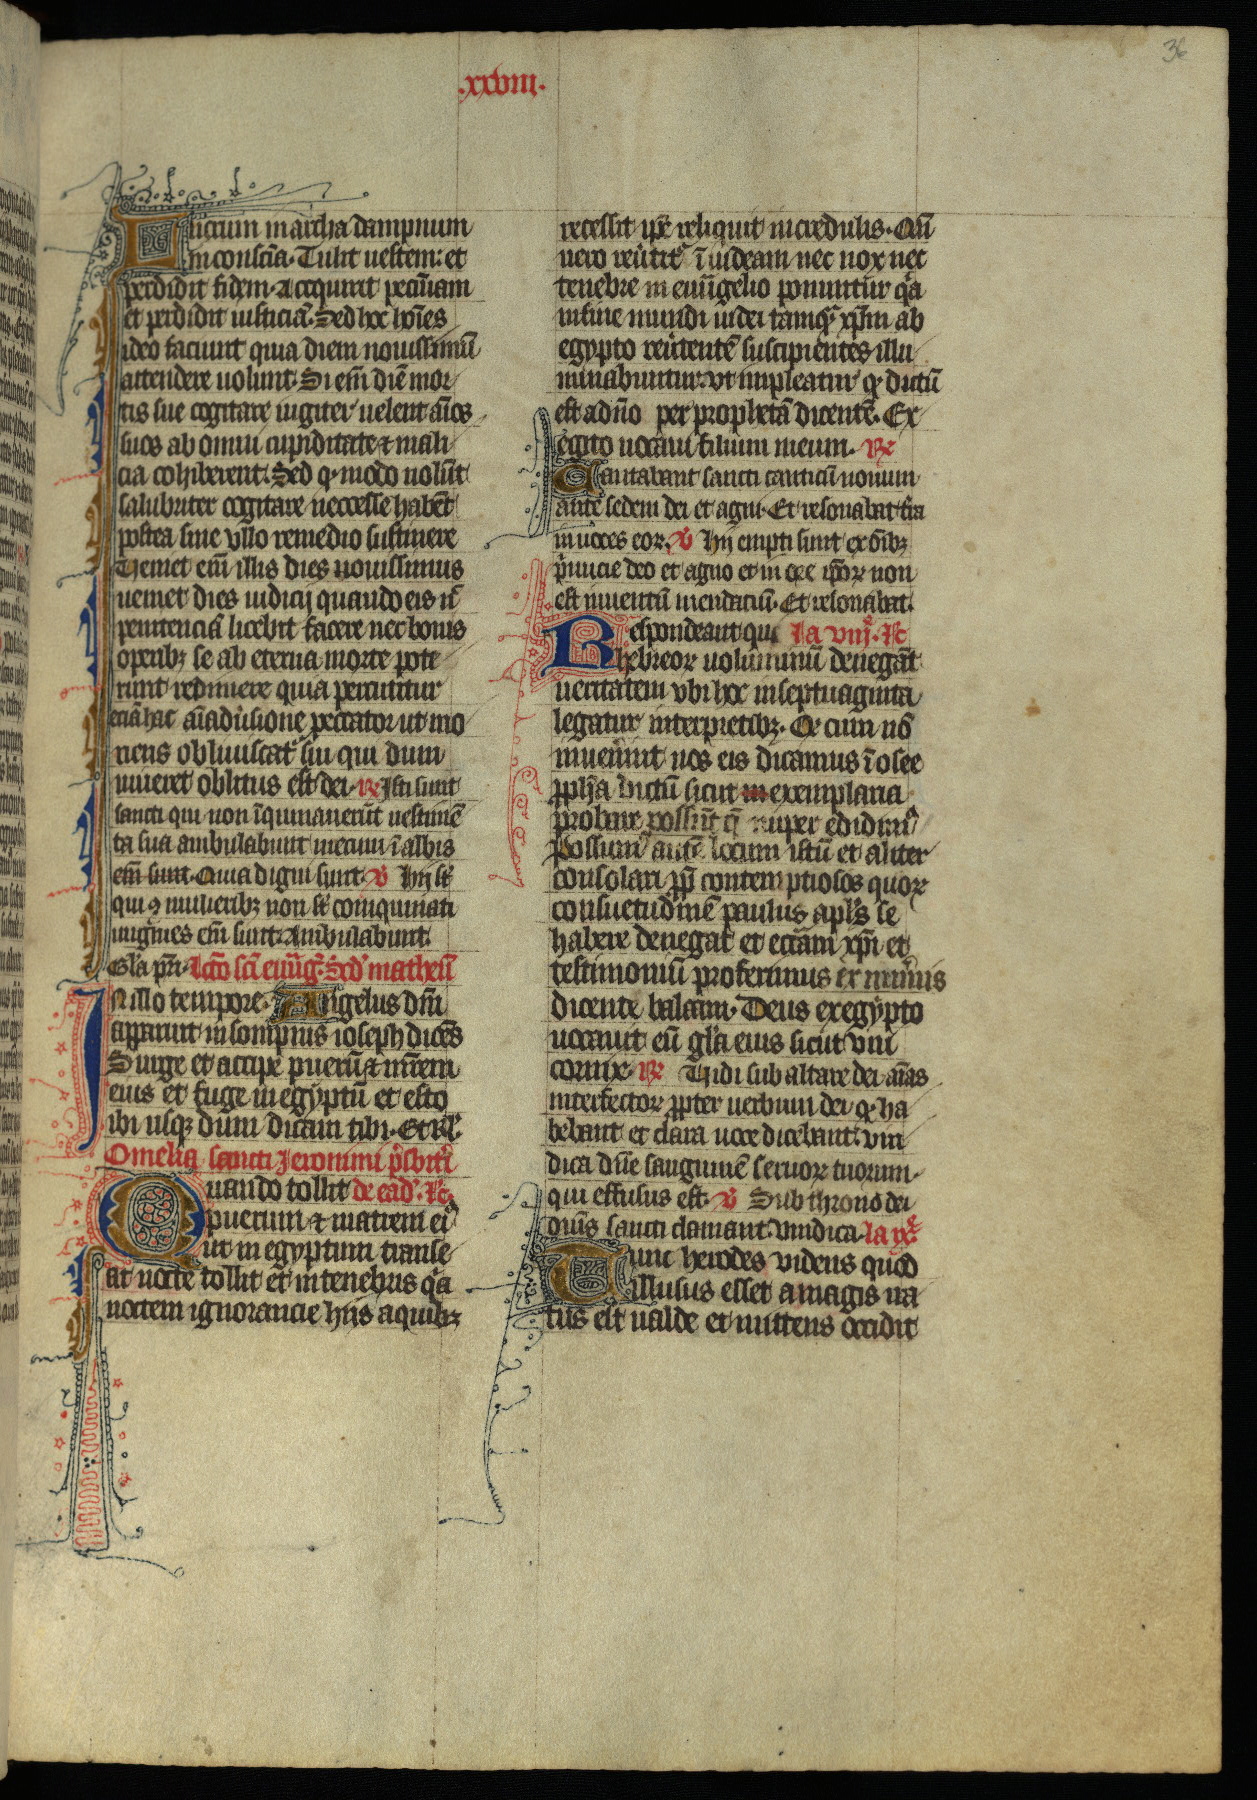 36
.xxviii.
Lucrum in archa dampnum
in conscīa. Tulit uestem: et
perdidit fidem. Acquirit pecūiam
et perdidit iusticiā. Sed hoc hoīes
ideo faciunt quia diem nouissimū
attendere nolunt. Si em̄ diē mor
tis sue cogitare iugiter uelent aīos
suos ab omni cupiditate ⁊ mali
cia cohiberent. Sed qͥ modo nolūt
salubriter cogitare neccesse habēt
postea sine vllo remedio sustinere
Ueniet em̄ illis dies nouissimus
ueniet dies iudicij quando eis n̄
penitenciā licebit facere nec bonis
operibꝫ se ab eterna morte pote
runt redimere quia percutitur
eciā hac aīaduͥsione peccator ut mo
riens obliuiscatͬ sui qui dum
uiueret oblitus est dei. R̄ Isti sunt
sancti qui non īquinauerūt uestimē
ta sua ambulabunt mecum ī albis
em̄ sunt. Quia digni sunt. V̄ Hij st̄
qui ꝯ mulieribꝫ non st̄ coinquinati
uirgines em̄ sunt. Ambulabunt.
Gl̄a pr̄i. Lc̄o sc̄i euāgͥ. Scd̄' matheū
IN illo tempore. Angelus dn̄i
apparuit in sompnis ioseph dicēs
Surge et accipe puerū ⁊ mr̄em
eius et fuge in egyptū et esto
ibi usqꝫ dum dicam tibi. Et Rͥl.
Omelia sancti Jeronimi p̄sbit̄i
Quando tollit de ead'. Lc̄.
puerum ⁊ matrem eiꝰ
ut in egyptum transe
at nocte tollit et in tenebris qͥa
noctem ignorancie hijs a quibꝫ
recessit ip̄e reliquit incredulis. Qn̄
uero reūtitͬ ī iudeam nec nox nec
tenebre in euāgelio ponuntur qͥa
in fine mundi iudei tamqͣ xp̄m ab
egypto reūtentē suscipientes illu
minabuntur. vt impleatur qͥ dictū
est a dn̄o per prophetā dicentē. Ex
egito uocaui filium meum. R̄
Cantabant sancti canticū nouum
ante sedem dei et agni. Et resonabat t̄ra
in uoces eoꝝ. V̄ Hij empti sunt ex oībꝫ
p̄micie deo et agno et in ore ip̄oꝝ non
est inuentū mendaciū. Et resonabat.
Respondeant qui La viijͣ. Lc̄
hebreoꝝ uoluminū denegāt
ueritatem vbi hoc in septuaginta
legatur interpretibꝫ. Qͥ cum nō
inuenint nos eis dicamus ī osee
ꝓph̄a dictū sicut in exemplaria
probare possūt q̄ nuper edidimꝰ
Possumꝰ autē locum istū et aliter
consolari ꝓp̄ contemptiosos quoꝝ
consuetudinē paulus apl̄s se
habere denegat et ecc̄am xp̄i et
testimoniū proferimus ex numͥis
dicente balaam. Deus ex egypto
uocauit eū gl̄a eius sicut vni
cornix. R̄ Vidi sub altare dei aīas
interfectoꝝ ꝓpter uerbum dei qͥ ha
bebant et clara uoce dicebant: vin
dica dn̄e sanguinē seruoꝝ tuorum.
qui effusus est. V̄ Sub throno dei
om̄s sancti clamant. Vindica. La ixͣ.
Tunc herodes videns quod
illusus esset a magis ira
tus est ualde et mittens occidit